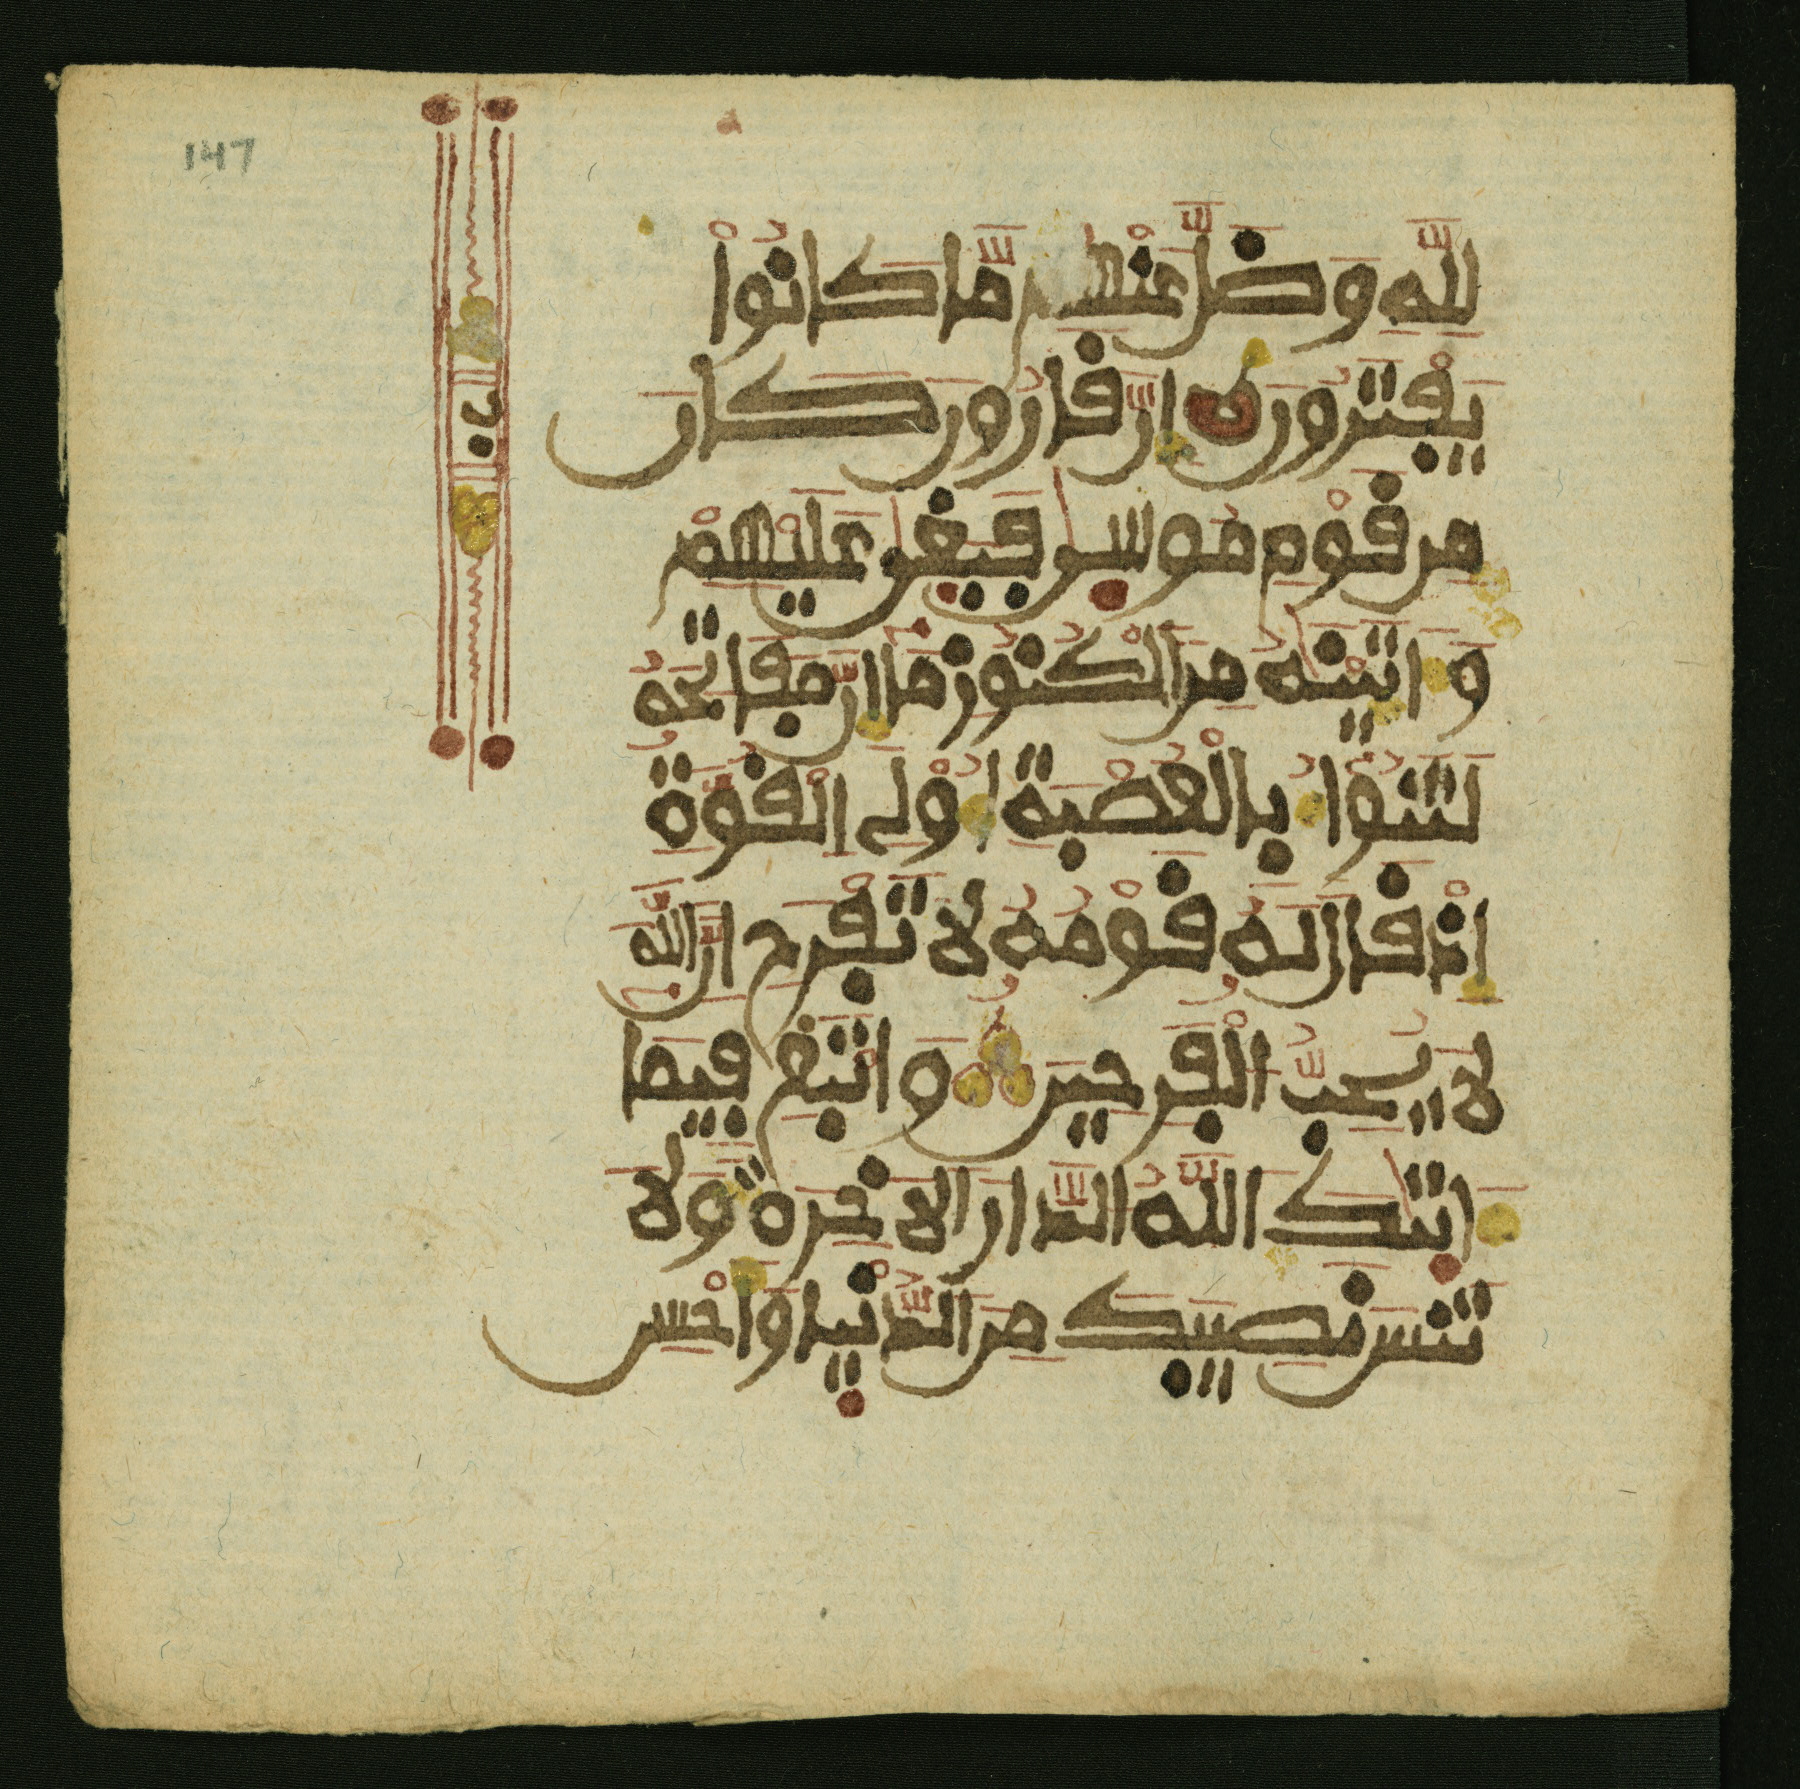 147
لِلَّهِ وَضَلَّ عَنْهُم مَّا كَانُواْ
يَفْتَرُونَ إِنَّ قَارُونَ كَانَ
مِن قَوْمِ مُوسَى فَبَغَى عَلَيْهِمْ
وَءَاتَيْنَٰهُ مِنَ الْكُنُوزِ مَا إِنَّ مَفَاتِحَهُ
لَتَنُوأُ بِالْعُصْبَةِ أُوْلِى الْقُوَّةِ
إِذْ قَالَ لَهُ قَوْمُهُ لَا تَفْرَحْ إِنَّ اللَّهَ
لَا يُحِبُّ الْفَرِحِينَ وَابْتَغِ فِيمَا
ءَاتَىٰكَ اللَّهُ الدَّارَ الْأَخِرَةَ وَلَا
تَنسَ نَصِيبَكَ مِنَ الدُّنْيَا وَأَحْسِن